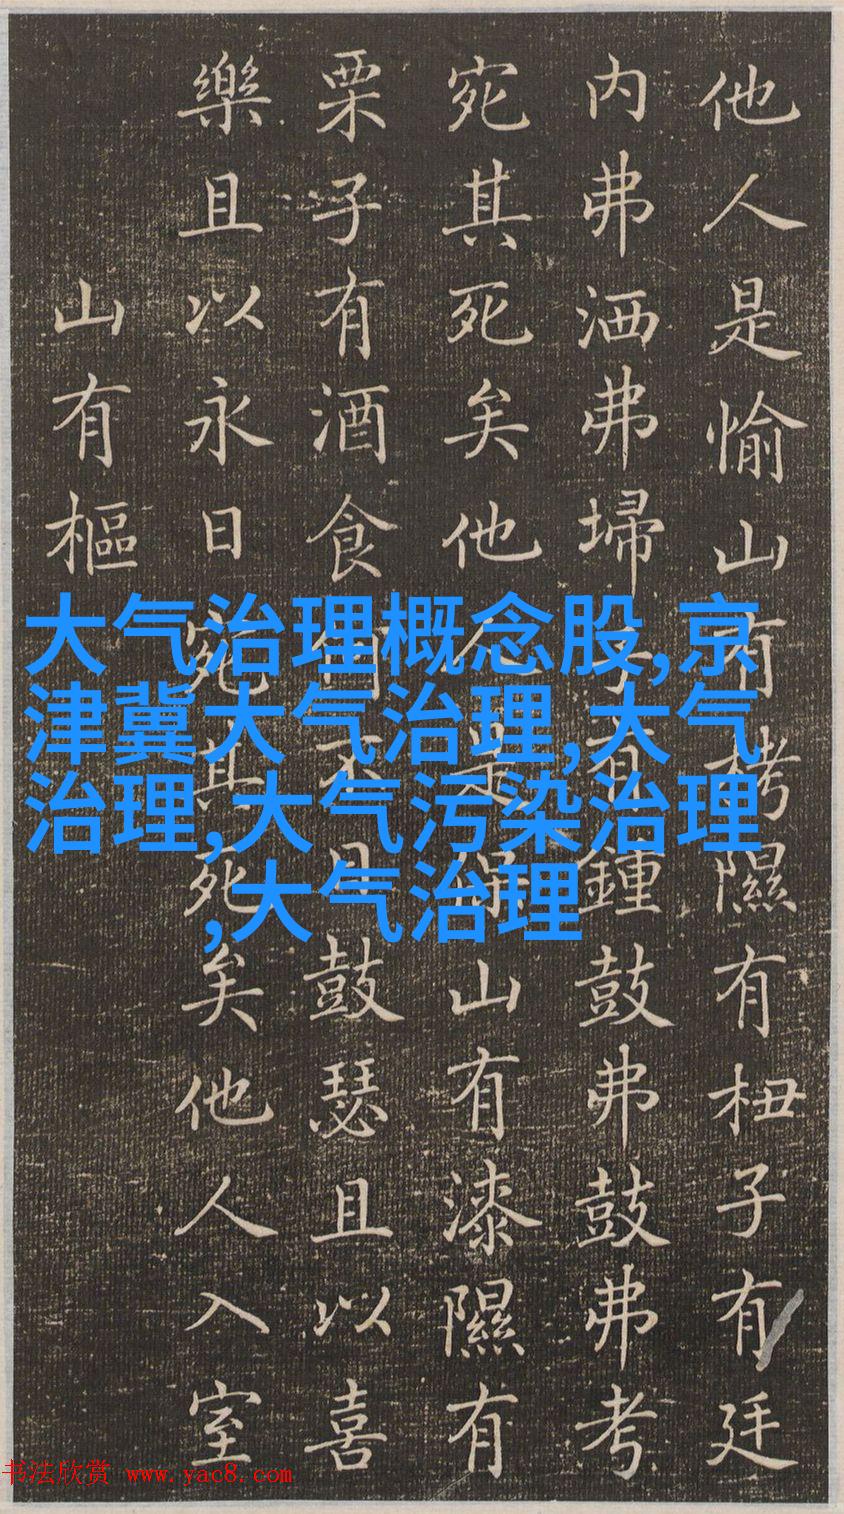 他人是愉山有栲隰有杻子有廷
内弗洒弗埽子有鍾鼓弗鼓弗考
宛其死矣他人是保山有漆隰有
栗子有酒食何不日鼓瑟且以喜
樂且以永日宛其死矣他人入室
山有樞
大气治理概念股,京
津冀大气治理,大气
治理,大气污染治理
,大气治理
书法欣赏 www.yac8.com